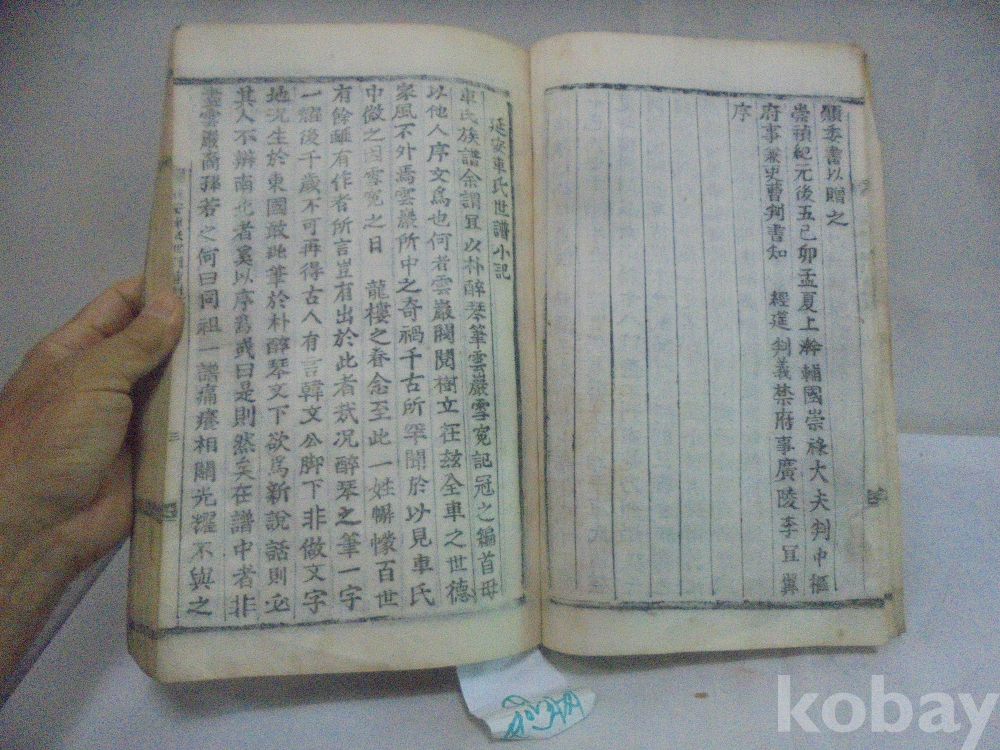 顧季書以贈之
崇禎紀元後五己卯孟夏上澣輔國崇祿大夫判中樞
府事兼吏曹判書知 經筵判義禁府事廣陵李宜翼
序
延安車氏世譜小記
車氏族譜余謂宜以朴醉琴筆雲巖雪冤記冠之編首毋
以他人序文爲也何者雲巖閥閱樹立在玆全車之世德
家風不外焉雲巖所中之奇禍千古所罕聞於以見車氏
中微之因雪冤之日 龍樓之眷念至此一姓帡幪百世
有餘雖有作者所言豈有出於此者哉况醉琴之筆一字
一耀後千歲不可再得古人有言韓文公脚下非做文字
地况生於東國敢此筆於朴醉琴文下欲爲新說話則必
其人不辨南北者奚以序爲或曰是則然矣在譜中者非
盡雲巖裔孫若之何曰同祖一譜痛癢相關光耀不與之
kobay